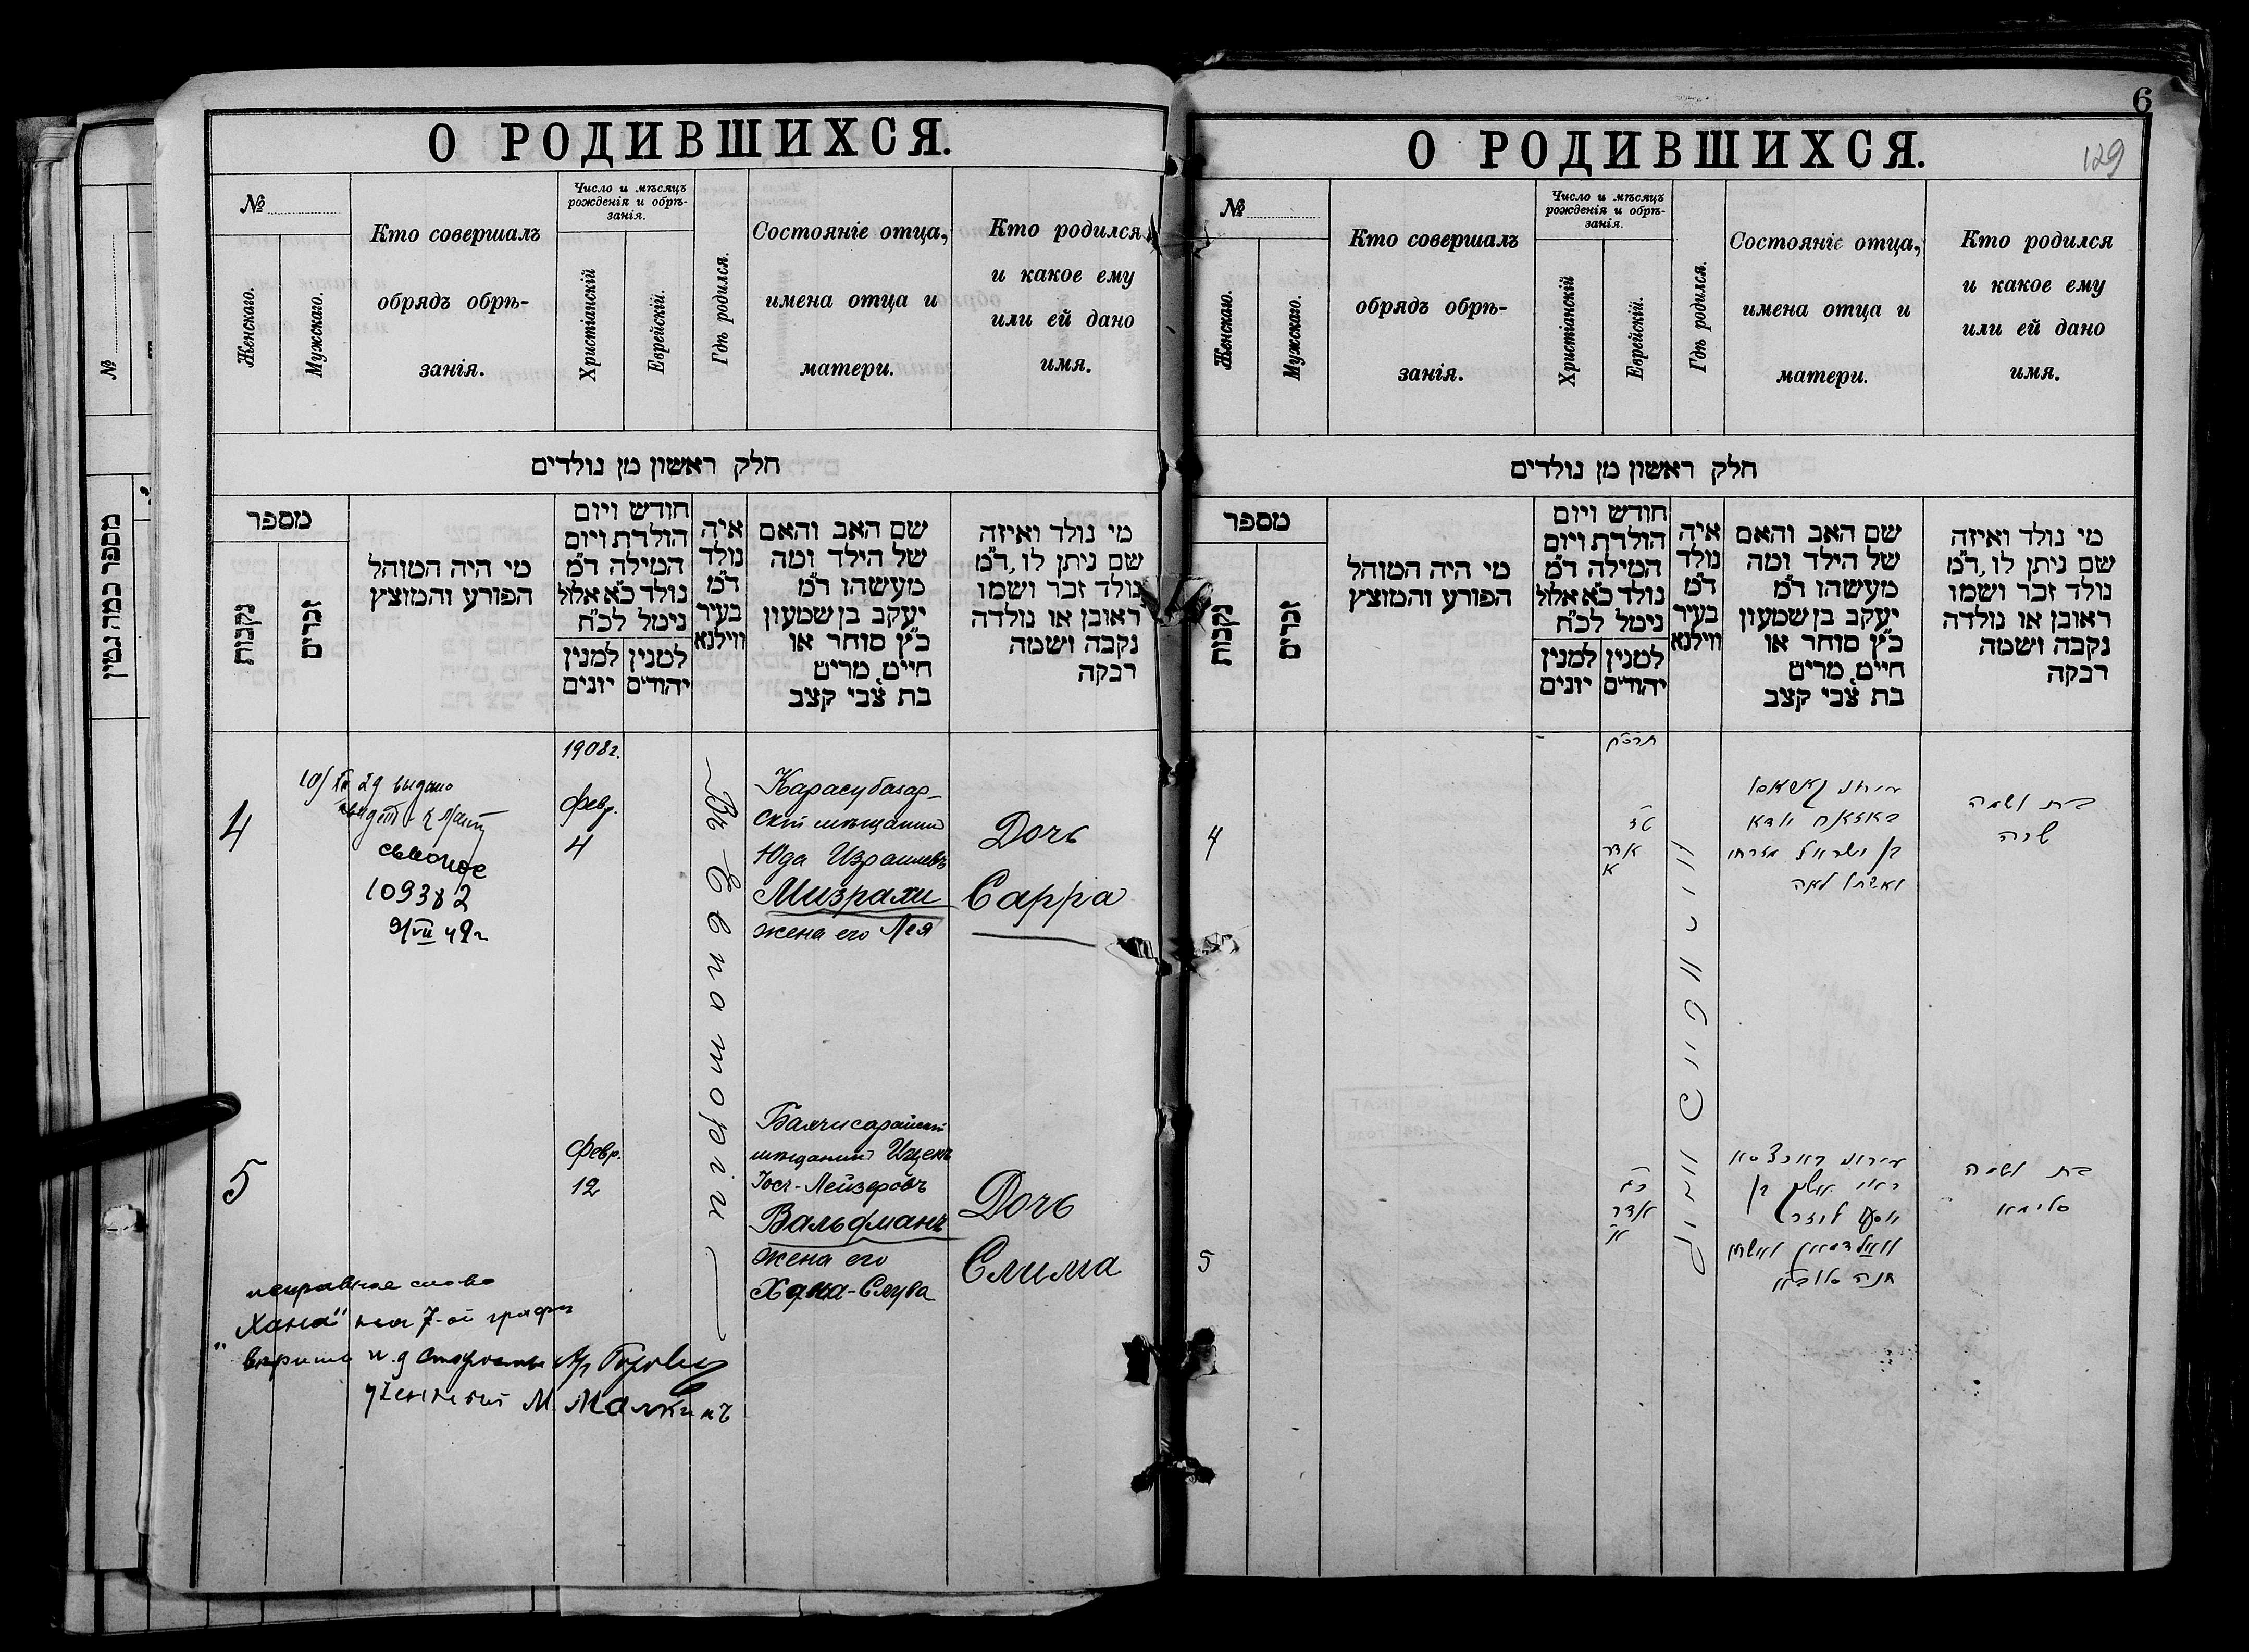 О РОДИВШИХСЯ.
№
Женскаго.
Мужскаго.
Кто совершалъ
обрядъ обрѣ-
занія.
Число и мѣсяцъ
рожденія и обрѣ-
занія.
Христіанскій
Еврейскій.
Гдѣ родился.
Состояніе отца,
имена отца и
матери.
Кто родился
и какое ему
или ей дано
имя.
חלק ראשון מן נולדים
מספר
נקבות
זכרים
מי היה המוהל
הפורע והמוצץ
חודש ויום
הולדת ויום
המילה ד״מ
נולד כ״א אלול
נימל לכ״ח
למנין יהודים
למנין יונים
איה
נולד
ד״מ
בעיר
ווילנא
שם האב והאם
של הילד ומה
מעשהו ד״מ
יעקב בן שמעון
כ״ץ סוחר או
חייט, מרים
בת צבי קצב
מי נולד ואיזה
שם ניתן לו, ד״מ
נולד זכר ושמו
ראובן או נולדה
נקבה ושמה
רבקה
1908 г.
4
выдано
109382
Февр.
4
Въ Евпаторіи
Карасубазар-
скій мѣщанинъ
Юда Израилевъ
Мизрахи
жена его Лея
Дочь
Сарра
5
Февр.
12
Бахчисарайскій
мѣщанинъ Ицекъ
Іось-Лейзеровъ
Вальфманъ
жена его
Хана-Слува
Дочь
Слима
исправное слово
"Хана" на 7-ой графѣ
вѣрно и.д Старосты
М. Малкинъ
6
129
О РОДИВШИХСЯ.
№
Женскаго.
Мужскаго.
Кто совершалъ
обрядъ обрѣ-
занія.
Число и мѣсяцъ
рожденія и обрѣ-
занія.
Христіанскій
Еврейскій.
Гдѣ родился.
Состояніе отца,
имена отца и
матери.
Кто родился
и какое ему
или ей дано
имя.
חלק ראשון מן נולדים
מספר
נקבות
זכרים
מי היה המוהל
הפורע והמוצץ
חודש ויום
הולדת ויום
המילה ד״מ
נולד כ״א אלול
נימל לכ״ח
למנין יהודים
למנין יונים
איה
נולד
ד״מ
בעיר
ווילנא
שם האב והאם
של הילד ומה
מעשהו ד״מ
יעקב בן שמעון
כ״ץ סוחר או
חייט, מרים
בת צבי קצב
מי נולד ואיזה
שם ניתן לו, ד״מ
נולד זכר ושמו
ראובן או נולדה
נקבה ושמה
רבקה
תרס״ח
4
אדר
א
בן ישראל מזרחי
ואשתו לאה
בת ושמה
שרה
5
אדר
א׳
חנה סלובא
בת ושמה
סלימא